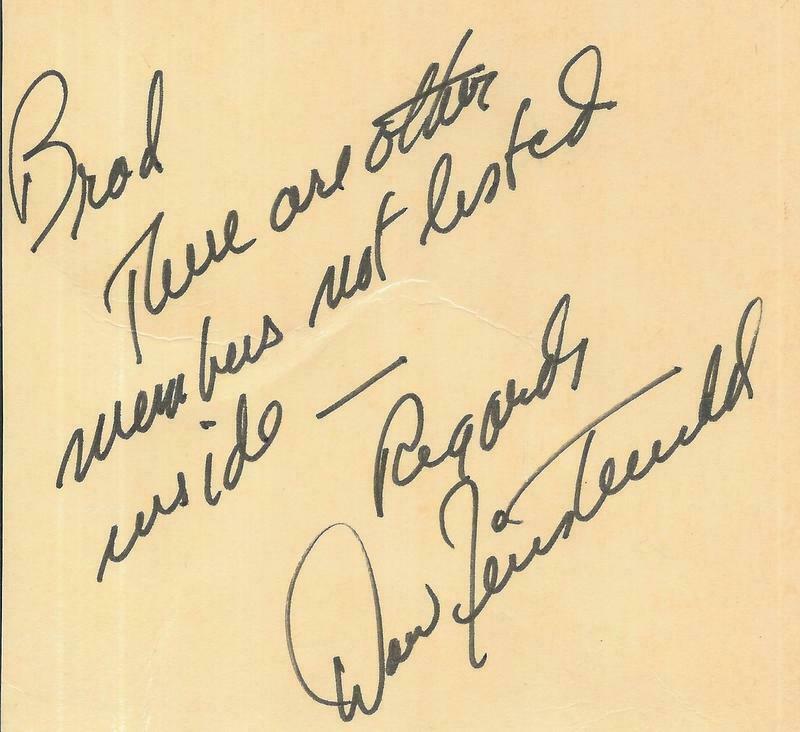 Brad
There are other
members not listed
inside —
Regards
Dow Finsterwald